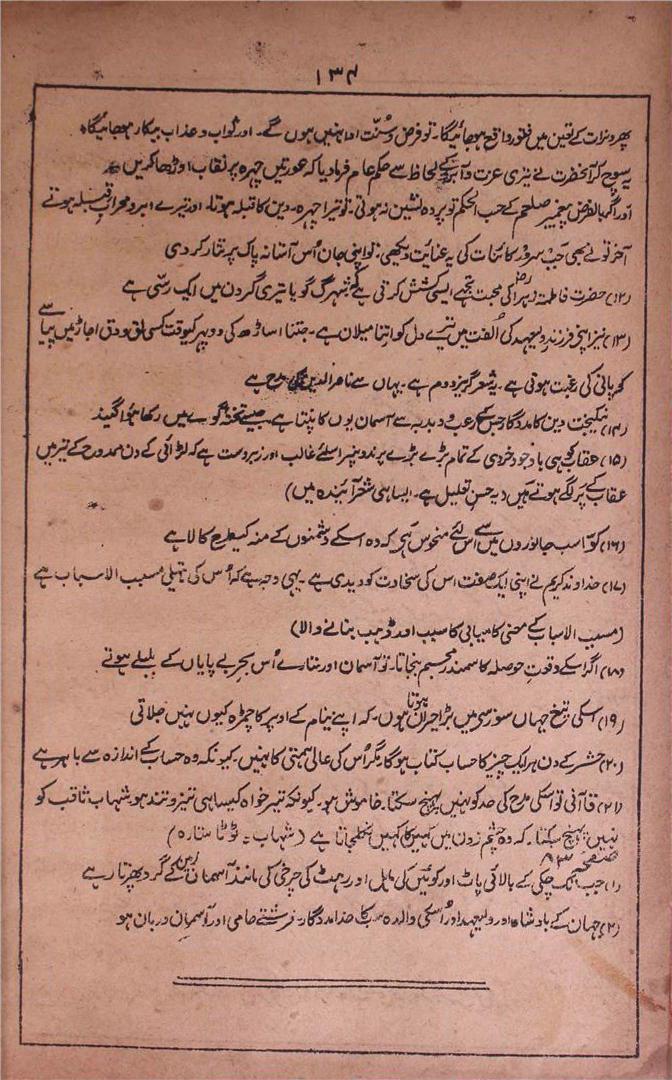 ۱۳۴
پھر دن رات کے تعین میں فتور واقع ہو جائیگا۔ تو فرض و سنّت ادا نہیں ہوں گے۔ اور ثواب و عذاب بیکار ہو جائیگا۔
یہ سوچ کر آنحضرت نے تیری عزت و آبرو کے لحاظ سے حکم عام فرما دیا کہ عورتیں چہرہ پر نقاب اوڑھا کریں
اور اگر بالفرض پیغمبر صلعم کے حسب الحکم تو پردہ نشین نہ ہوتی۔ تو تیرا چہرہ۔ دین کا قبلہ ہوتا۔ اور تیرے ابرو محراب قبلہ ہوتے
آخر تو نے بھی جب سرور کائنات کی یہ عنایت دیکھی۔ تو اپنی جان اُس آستانہ پاک پر نثار کر دی
(۱۲) حضرت فاطمہ زہراؓ کی محبت تجھے ایسی کشش کرتی ہے کہ شہ رگ گویا تیری گردن میں ایک رسّی ہے
(۱۳) نیز اپنی فرزند ولیعہد کی اُلفت میں تیرے دل کو اِتنا میلان ہے۔ جتنا اساڑھ کی دوپہر کیوقت کسی لق و دق اجاڑ میں پیاسے
کو پانی کی رغبت ہوتی ہے۔ یہ شعر گریز دوم ہے۔ یہاں سے ناصر الدین کی مدح ہے
(۱۴) نیکبخت دین کا مددگار جس کے رعب و دبدبہ سے آسمان یوں کانپتا ہے۔ جیسے تختہ گوے میں رکھا ہوا گیند
(۱۵) عقاب کو ہی باوجود خردی کے تمام بڑے بڑے پرندوں پر اسلئے غالب اور زبردست ہے کہ لڑائی کے دن ممدوح کے تیر میں
عقاب کے پر لگے ہوتے ہیں (یہ حسن تعلیل ہے۔ ایسا ہی شعر آئندہ میں)
(۱۶) کوّا سب جانوروں میں سے اس لئے منحوس ہے کہ وہ اسکے دشمنوں کے منہ کیطرح کالا ہے
(۱۷) خداوند کریم نے اپنی ایک صفت اس کی سخاوت کو دیدی ہے۔ یہی وجہ ہے کہ اُس کی ہتیلی مسبب الاسباب ہے
(مسبب الاسباب کے معنی کامیابی کا سبب اور ڈھب بنانے والا)
(۱۸) اگر اسکے وقوتِ حوصلہ کا سمندر مجسم بنجاتا۔ تو آسمان اور ستارے اُس بحر بے پایاں کے بلبلے ہوتے
(۱۹) اسکی تیغ جہاں سوز سے میں بڑا حیران ہوتا ہوں۔ کہ اپنے نیام کے اوپر کا چمڑہ کیوں نہیں جلاتی
(۲۰) حشر کے دن ہر ایک چیز کا حساب کتاب ہوگا مگر اُس کی عالی ہمتی کا نہیں۔ کیونکہ وہ حساب کے اندازہ سے باہر ہے
(۲۱) قاآنی تو اسکی مدح کی حد کو نہیں پہنچ سکتا۔ خاموش ہو۔ کیونکہ تیر خواہ کیسا ہی تیز و تند ہو۔ شہاب ثاقب کو
نہیں پہنچ سکتا۔ کہ وہ چشم زدن میں کہیں کا کہیں نکلجاتا ہے (شہاب = ٹوٹا ستارہ)
صفحہ ۸۳
(۱) جب تک چکی کے بالائی پاٹ اور کوئیں کی ہل اور رہٹ کی چرخی کی مانند آسمان زمین کے گرد پھرتا رہے
(۲) جہان کے بادشاہ اور ولیعہد اور اُسکی والدہ سب کا خدا مددگار۔ فرشتے حامی اور آسمان دربان ہو